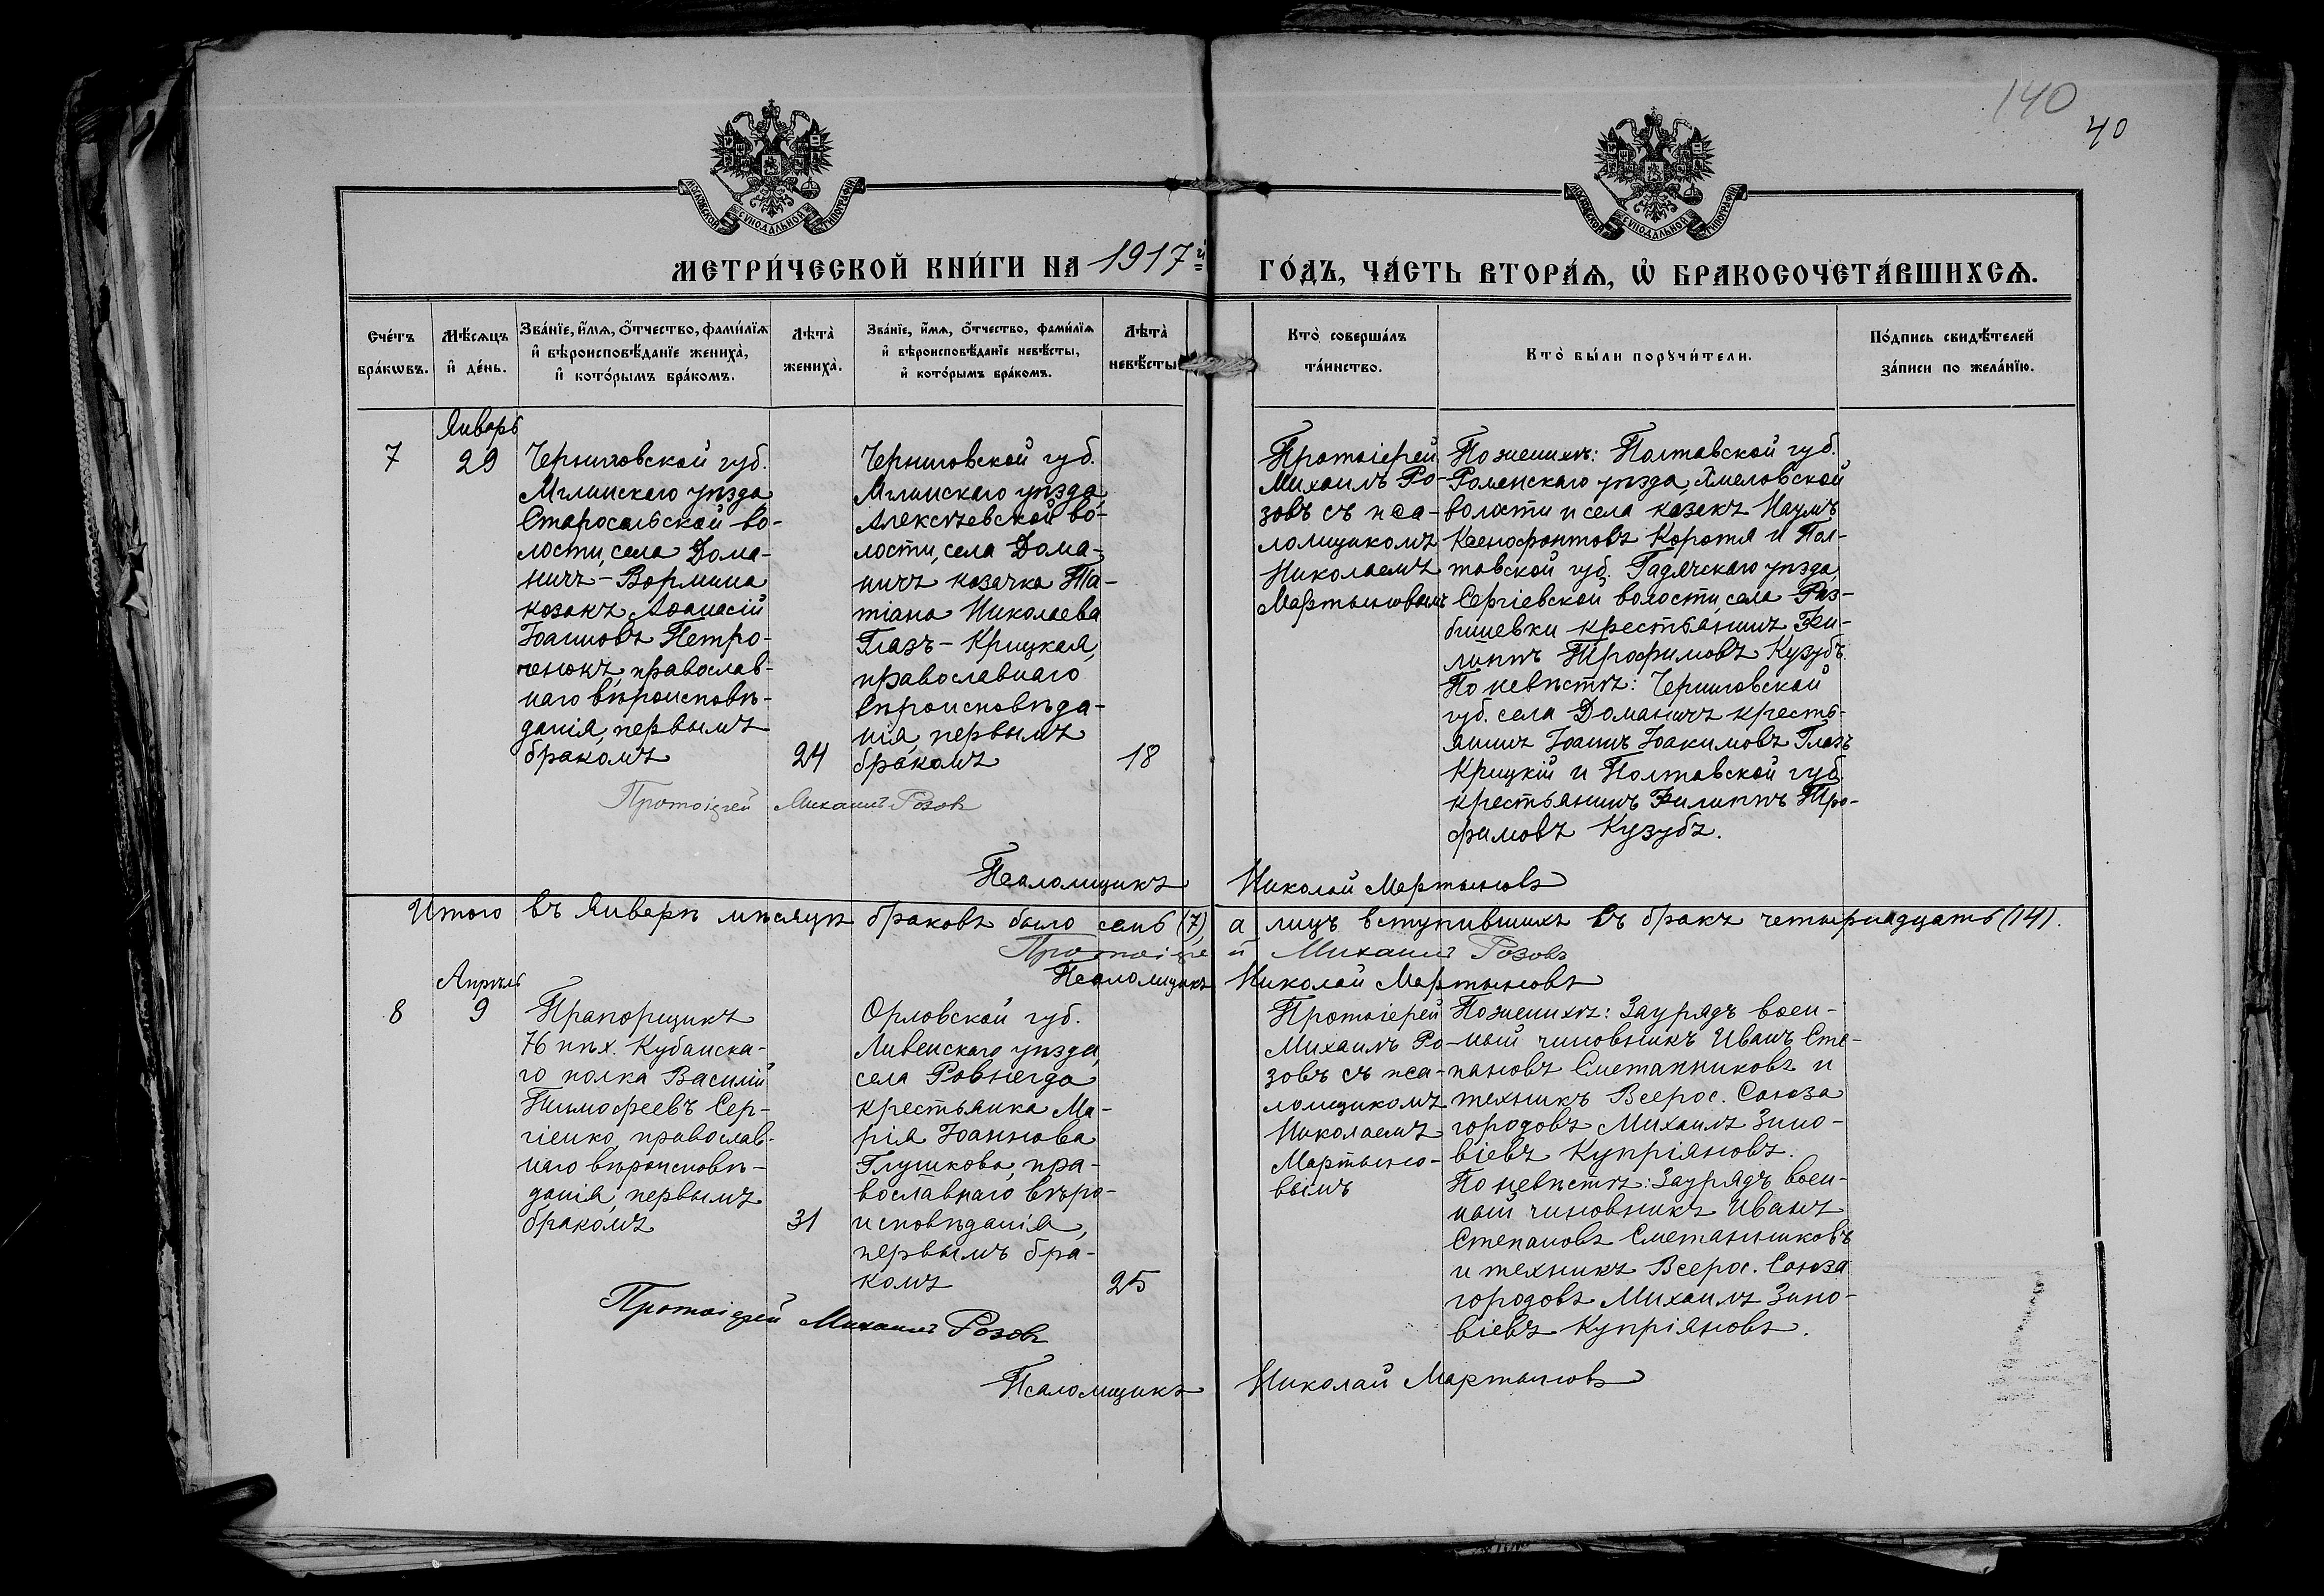 140
40
МОСКОВСКОЙ СУНОДАЛЬНОЙ ТИПОГРАФІИ
МОСКОВСКОЙ СУНОДАЛЬНОЙ ТИПОГРАФІИ
МЕТРИ́ЧЕСКОЙ КНИ́ГИ НА 1917й ГО́ДЪ, ЧА́СТЬ ВТОРА́Ѧ, Ѡ҆ БРАКОСОЧЕТА́ВШИХСѦ.
Сче́тъ
бра́кѡвъ.
Мѣ́сѧцъ
и҆ де́нь.
Зва́нїе, и҆́мѧ, ѻ҆́тчество, фами́лїѧ
и҆ вѣроисповѣ́данїе жениха̀,
и҆ кото́рымъ бра́комъ.
Лѣта̀
жениха̀.
Зва́нїе, и҆́мѧ, ѻ҆́тчество, фами́лїѧ
и҆ вѣроисповѣ́данїе невѣ́сты,
и҆ кото́рымъ бра́комъ.
Лѣта̀
невѣ́сты.
Кто̀ соверша́лъ
та́инство.
Кто̀ бы́ли порꙋчи́тели.
По́дпись свидѣ́телей
за́писи по жела́нїю.
7
Январь
29
Черниговской губ.
Мглинскаго уѣзда
Старосельской во-
лости, села Дома-
ничъ-Вормина
козакъ Аѳанасій
Іоанновъ Петро-
ченокъ, православ-
наго вѣроисповѣ-
данія, первымъ
бракомъ
24
Черниговской губ.
Мглинскаго уѣзда,
Алексѣевской во-
лости, села Дома-
ничъ козачка Та-
тіана Николаева
Глазъ-Крицкая,
православнаго
вѣроисповѣда-
нія, первымъ
бракомъ
18
Протоіерей
Михаилъ Ро-
зовъ съ пса-
ломщикомъ
Николаемъ
Мартыновымъ
По женихѣ: Полтавской губ.
Роменскаго уѣзда, Хмеловской
волости и села казакъ Наумъ
Ксенофонтовъ Коротя и Пол-
тавской губ. Гадячскаго уѣзда,
Сергіевской волости, села Раз-
бишевки крестьянинъ Фи-
липпъ Трофимовъ Кузубъ.
По невѣстѣ: Черниговской
губ. села Доманичъ кресть-
янинъ Іоаннъ Іоакимовъ Глазъ
Крицкій и Полтавской губ.
крестьянинъ Филиппъ Тро-
фимовъ Кузубъ.
Протоіерей Михаилъ Розовъ
Псаломщикъ Николай Мартыновъ
Итого въ Январѣ мѣсяцѣ браковъ было семь (7), а лицъ вступившихъ въ бракъ четырнадцать (14).
Протоіерей Михаилъ Розовъ
Псаломщикъ Николай Мартыновъ
8
Апрѣль
9
Прапорщикъ
76 пѣх. Кубанска-
го полка Василій
Тимофеевъ Сер-
гіенко, православ-
наго вѣроисповѣ-
данія, первымъ
бракомъ
31
Орловской губ.
Ливенскаго уѣзда,
села Ровнегда
крестьянка Ма-
рія Іоаннова
Глушкова, пра-
вославнаго вѣро-
исповѣданія,
первымъ бра-
комъ
25
Протоіерей
Михаилъ Ро-
зовъ съ пса-
ломщикомъ
Николаемъ
Мартыно-
вымъ
По женихѣ: Заурядъ воен-
ный чиновникъ Иванъ Сте-
пановъ Сметанниковъ и
техникъ Всерос. Союза
городовъ Михаилъ Зино-
віевъ Купріяновъ.
По невѣстѣ: Заурядъ воен-
ный чиновникъ Иванъ
Степановъ Сметанниковъ
и техникъ Всерос. Союза
городовъ Михаилъ Зино-
віевъ Купріяновъ.
Протоіерей Михаилъ Розовъ
Псаломщикъ Николай Мартыновъ